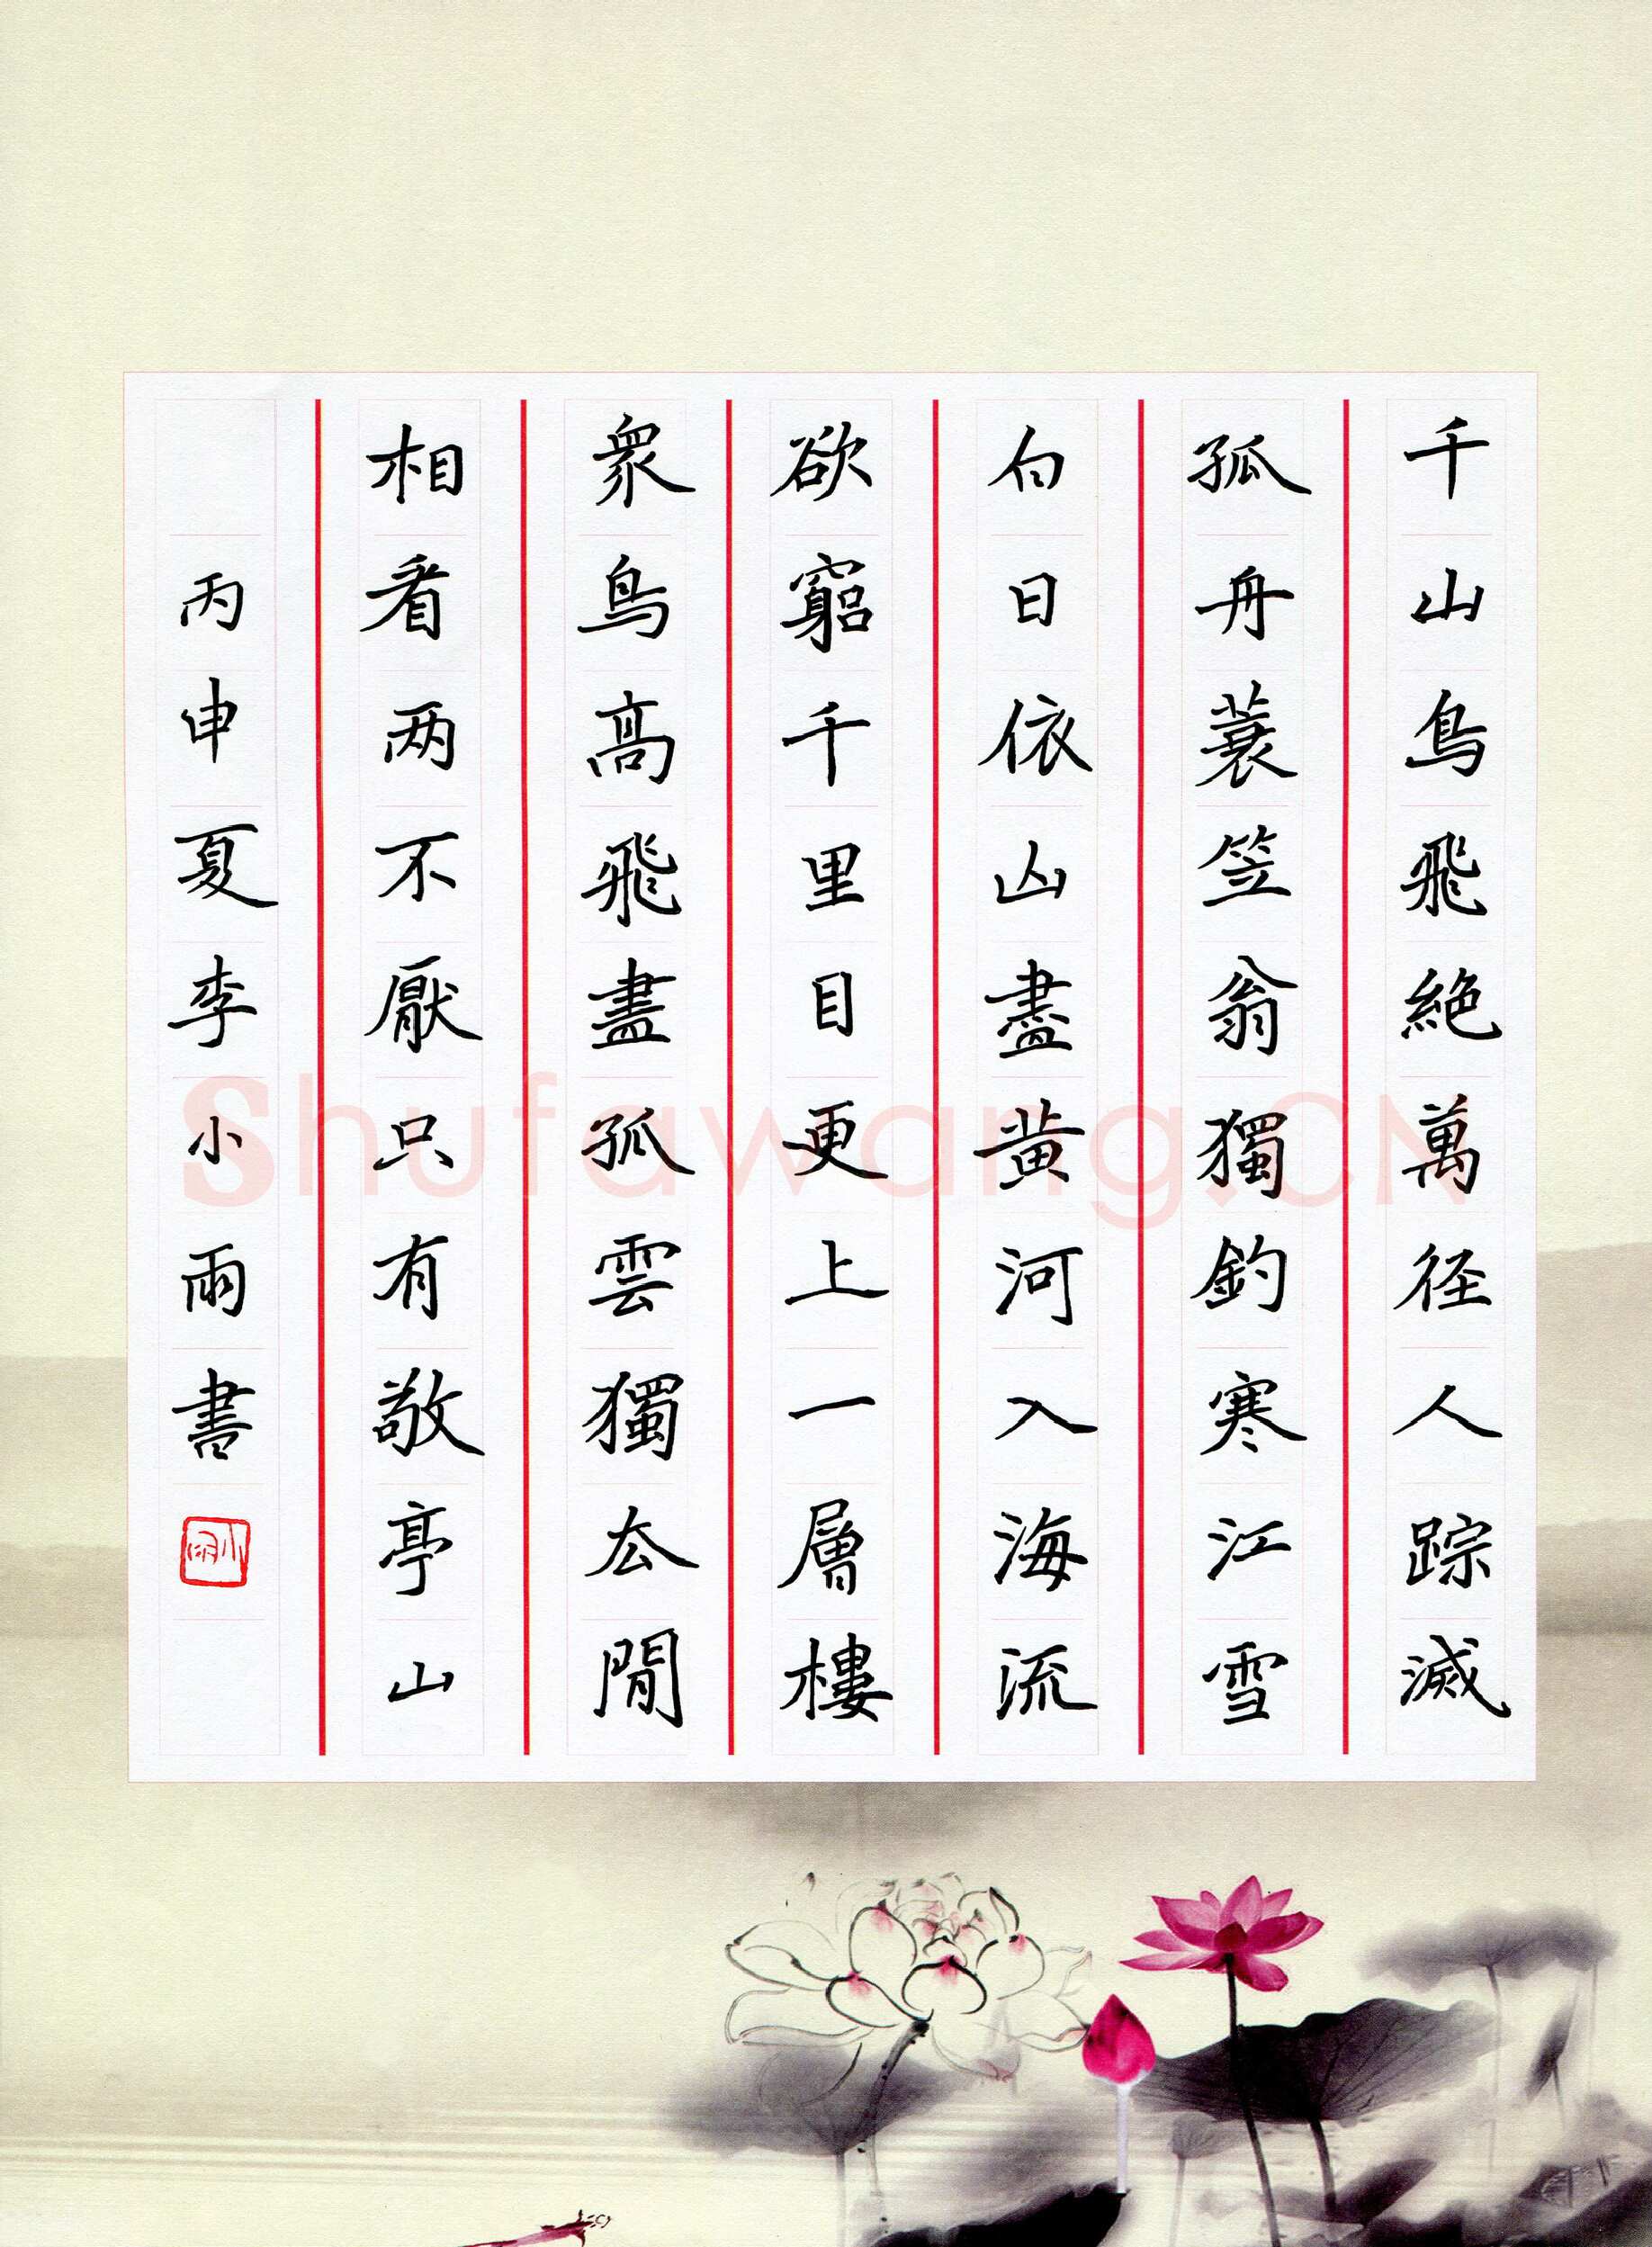 千山鳥飛絶萬径人踪滅
孤舟蓑笠翁獨釣寒江雪
白日依山盡黄河入海流
欲窮千里目更上一層樓
衆鳥高飛盡孤雲獨去閒
相看两不厭只有敬亭山
丙申夏李小雨書
小雨
Shufawang.CN